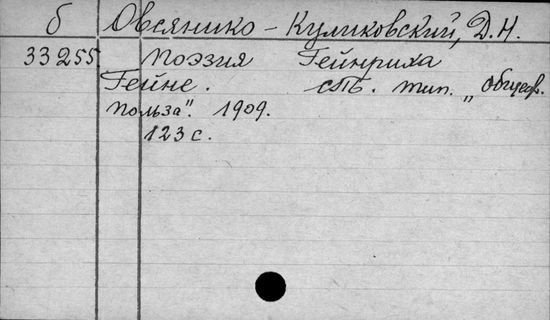 б Овсянико-Куликовский, Д.Н.
33255 Поэзия Гейнриха
Гейне. СПБ. тип. „Обществ.
польза". 1909.
123 с.